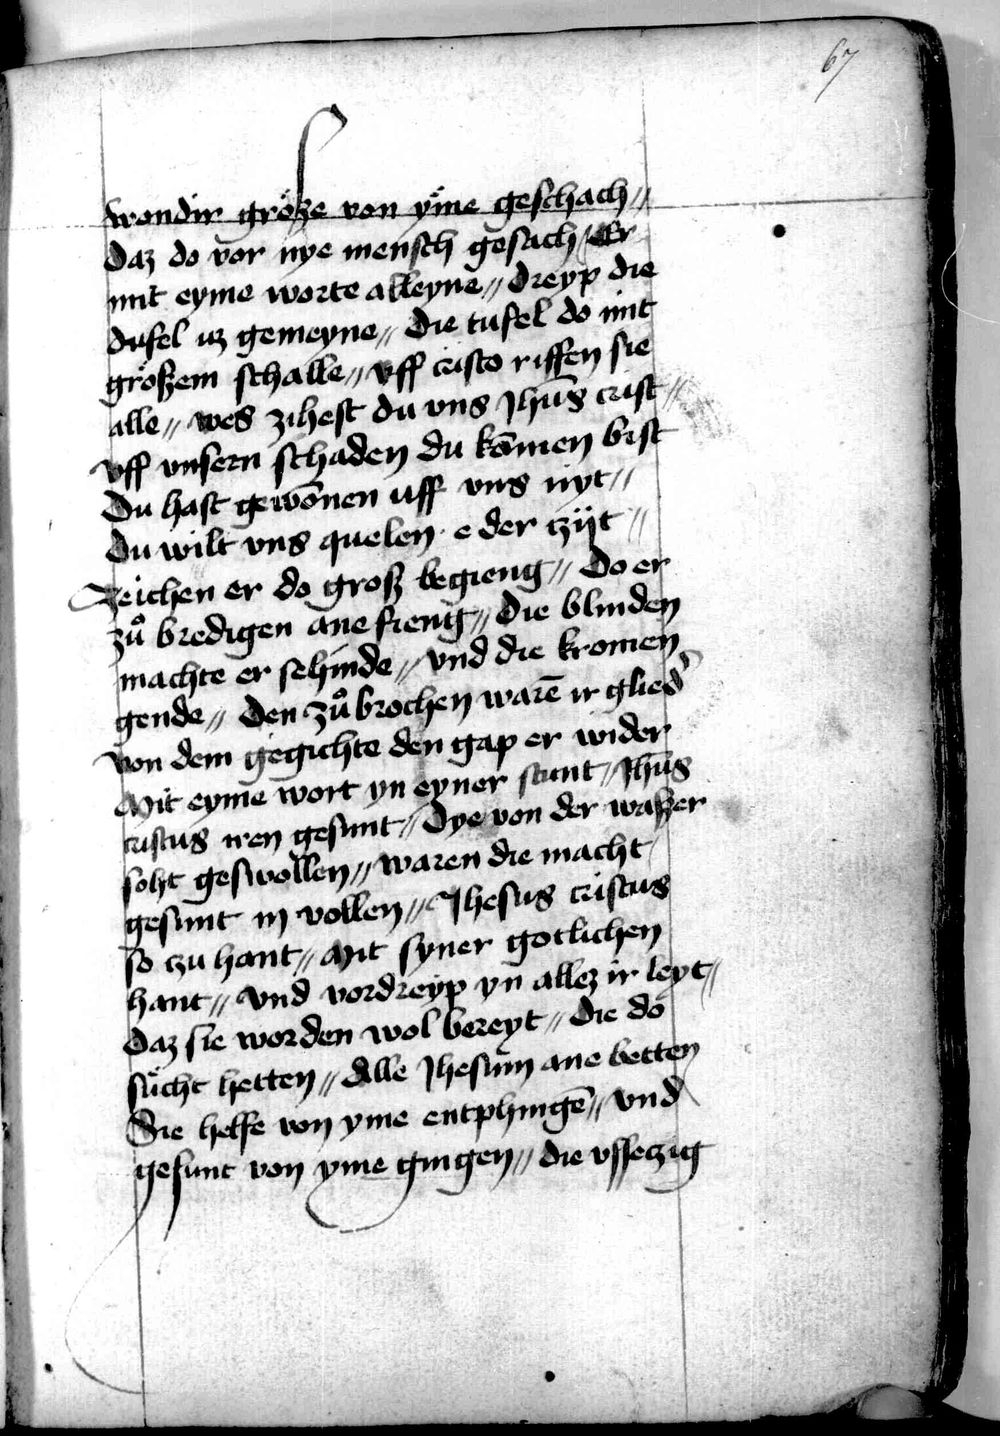 67
wondir große von yme geschach //
daz do vor nye mensch gesach / Er
mit eyme worte alleyne // dreyp die
dufel uz gemeyne // die tufel do mit
großem schalle // vff cristo riffen sie
alle // wes zihest du vns Jhūs crist //
vff vnsern schaden du kōmen bist
Du hast gewōnen uff vns nyt //
du wilt vns quelen · e der czijt //
Zeichen er do groß begieng // Do er
zuͦ bredigen ane fieng // Die blinden
machte er sehinde // vnd die kromen
gende // Den zuͦbrochen warē ir glied'
von dem gegichte den gap er wider
Mit eyme wort yn eyner stunt // Jhūs
cristus iren gesunt // Dye von der waßer
soht geswollen // waren die macht
gesunt in vollen // Jhesus cristus
so czu hant // Mit syner gotlichen
hant // vnd vordreyp yn allez ir leyt //
Daz sie worden wol bereyt // Die do
sücht hetten // Alle Jhesum ane betten
Sie helfe von yme entphingē // vnd
gesunt von yme gingen // die vsseczig